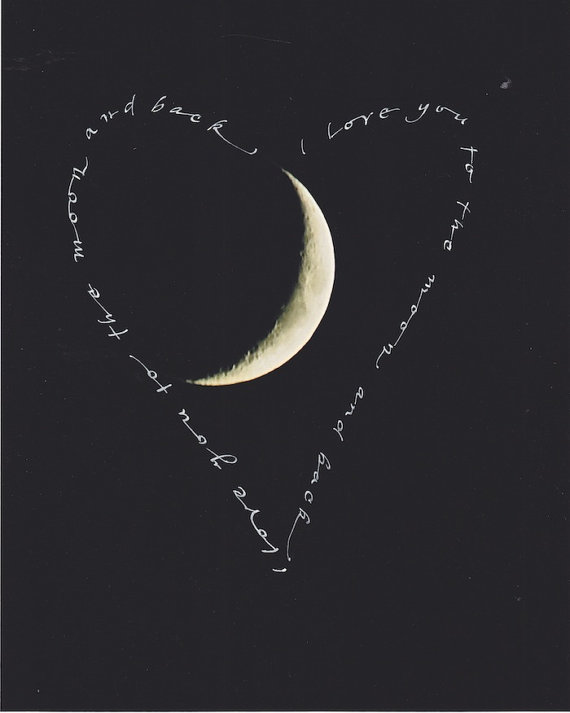 i love you to the moon and back
i love you to the moon and back